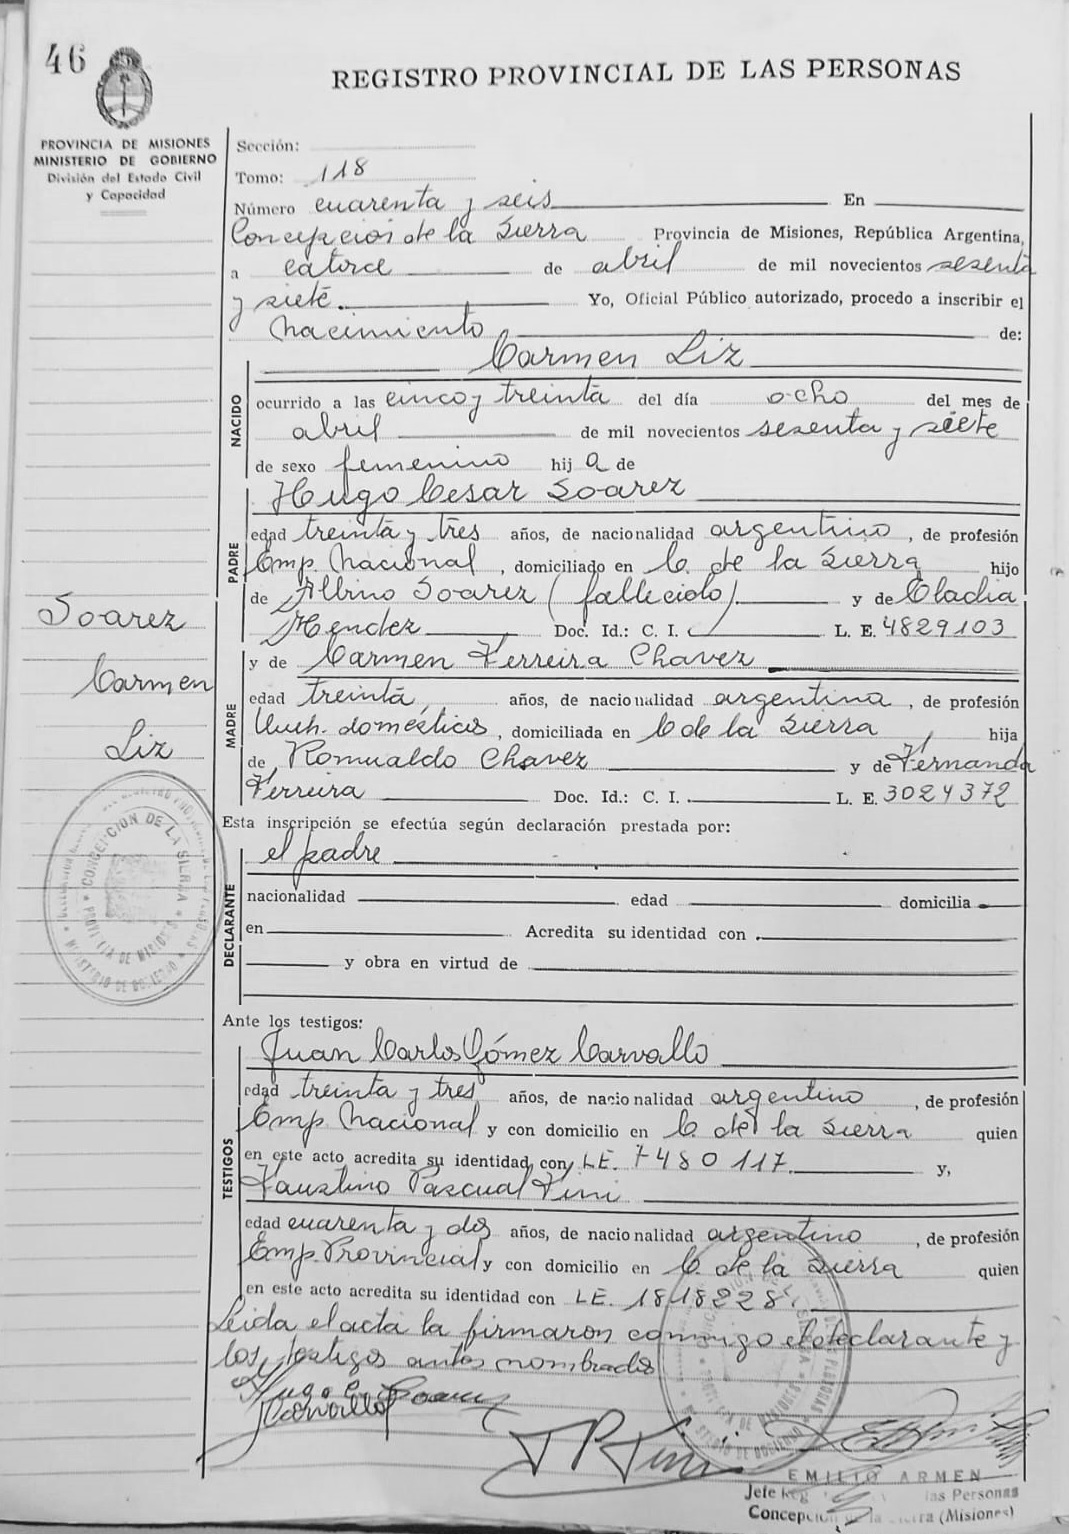 46
REGISTRO PROVINCIAL DE LAS PERSONAS
PROVINCIA DE MISIONES
MINISTERIO DE GOBIERNO
División del Estado Civil
y Capacidad
Sección:
Tomo: 118
Número cuarenta y seis En
Concepción de la Sierra Provincia de Misiones, República Argentina,
a catorce de abril de mil novecientos sesenta
y siete. Yo, Oficial Público autorizado, procedo a inscribir el
Nacimiento de:
Carmen Liz
NACIDO
ocurrido a las cinco y treinta del día ocho del mes de
abril de mil novecientos sesenta y siete
de sexo femenino hij a de
Hugo Cesar Soarez
PADRE
edad treinta y tres años, de nacionalidad argentino, de profesión
Emp. Nacional, domiciliado en C. de la Sierra hijo
de Albino Soarez (fallecido) y de Cladia
Mendez Doc. Id.: C. I. L. E. 4829103
y de Carmen Ferreira Chavez
MADRE
edad treinta, años, de nacionalidad argentina, de profesión
Queh. domésticos, domiciliada en C de la Sierra, hija
de Romualdo Chavez y de Fernanda
Ferreira Doc. Id.: C. I. L. E. 3024372
Soarez
Carmen
Liz
CONCEPCION DE LA SIERRA
MINISTERIO DE GOBIERNO
Esta inscripción se efectúa según declaración prestada por:
el padre
DECLARANTE
nacionalidad edad domicilia
en Acredita su identidad con
y obra en virtud de
Ante los testigos:
Juan Carlos Gómez Carvallo
TESTIGOS
edad treinta y tres años, de nacionalidad argentino, de profesión
Emp Nacional y con domicilio en C. de la Sierra quien
en este acto acredita su identidad con LE. 7480117. y,
Faustino Pascual Fini
edad cuarenta y dos años, de nacionalidad argentino, de profesión
Emp. Provincial y con domicilio en C. de la Sierra quien
en este acto acredita su identidad con LE. 1818228.
Leida el acta la firmaron conmigo el declarante y
los testigos antes nombrados
Hugo C. Soarez
Carvallo
F P Fini
EMILIO ARMEN
Jefe Reg las Personas
Concepción de la Sierra (Misiones)